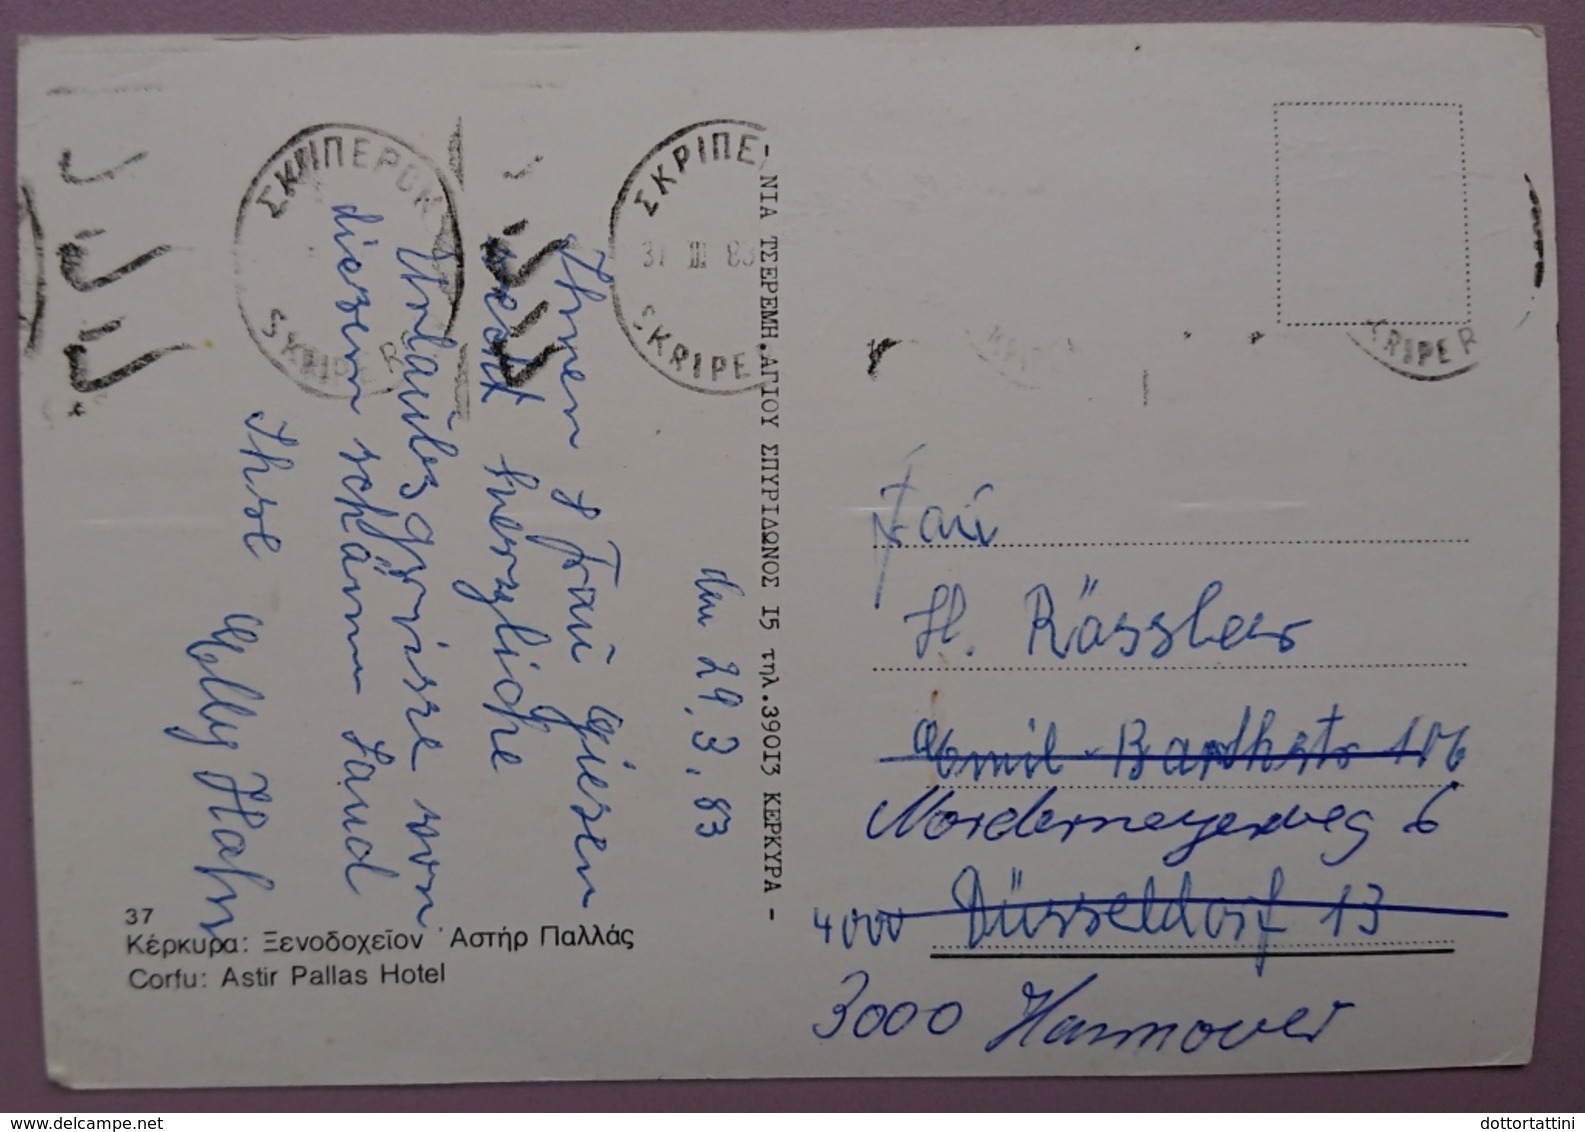 ΣΚΡΙΠΕΡΟΝ
SKRIPER
ΣΚΡΙΠΕ
31 III 83
SKRIPE
KRIPER
den 29.3.83
Ihnen & Frau Giesen
recht herzliche
Urlaubsgrüsse von
diesem schönen Land
Ihre Elly Hahn
37
Κέρκυρα: Ξενοδοχεῖον Ἀστήρ Παλλάς
Corfu: Astir Pallas Hotel
ΝΙΑ ΤΣΕΡΕΜΗ.ΑΓΙΟΥ ΣΠΥΡΙΔΩΝΟΣ 15 τηλ.39013 ΚΕΡΚΥΡΑ -
Frau
H. Rässler
Emil-Barthstr 106
Norderneyerweg 6
4000 Düsseldorf 13
3000 Hannover
dottortattini
delcampe.net